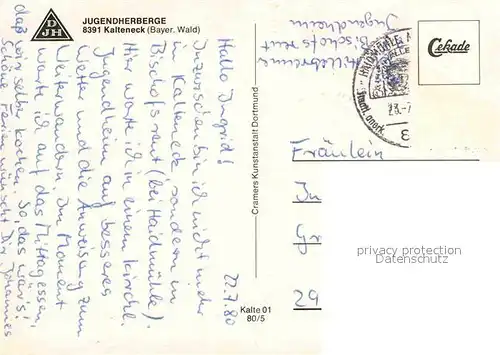 DJH
JUGENDHERBERGE
8391 Kalteneck (Bayer. Wald)
22.7.80
Hallo Ingrid!
Inzwischen bin ich nicht mehr
in Kalteneck sondern in
Bischofsreut (bei Haidmühle).
Hier warte ich in einem kirchl.
Jugendheim auf besseres
Wetter und die Anweisung zum
Weiterwandern. Im Moment
warte ich auf das Mittagessen,
daß wir selber kochen. So, das wär's!
Schöne Ferien wünscht Dir Johannes
Bischofsreut
Jugendheim
Cramers Kunstanstalt Dortmund
Kalte 01
80/5
Cekade
23.-7
Staatl. anerk.
8
Fräulein
In
Gr
29
privacy protection
Datenschutz